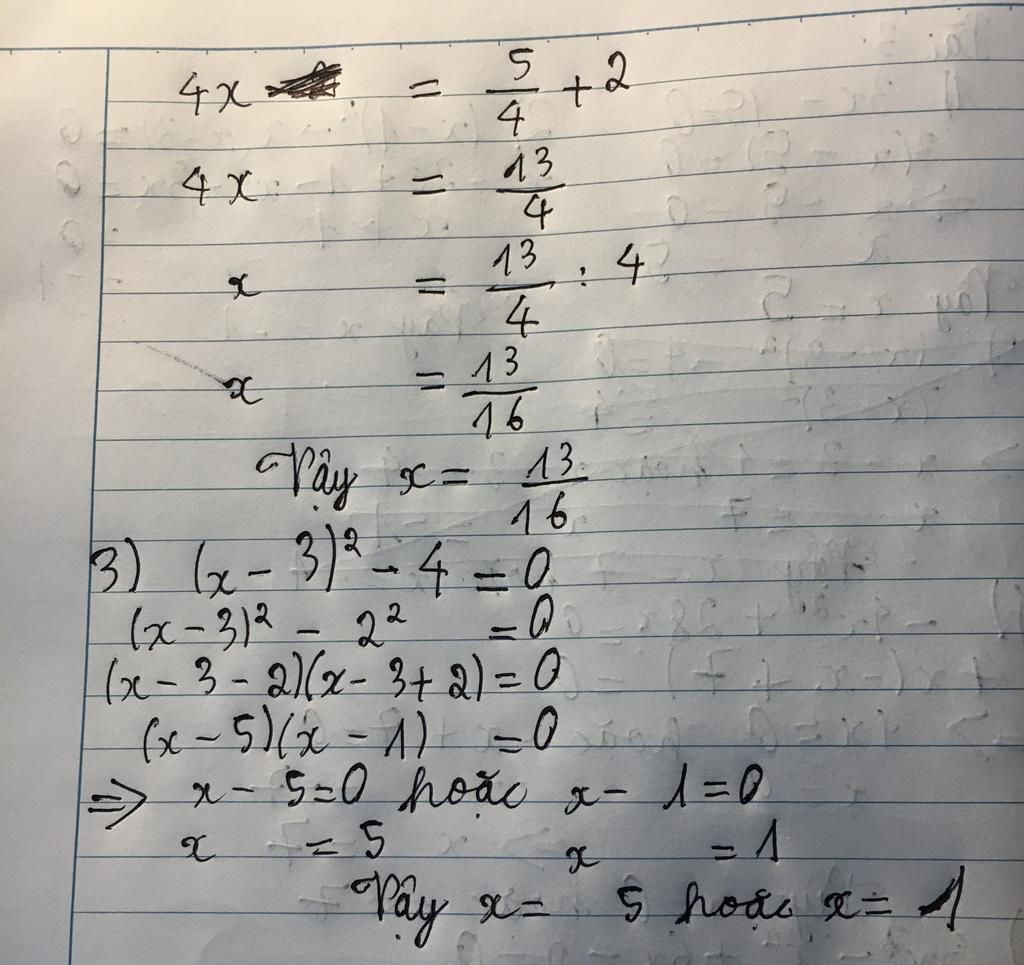 4x = 5/4 + 2
4x = 13/4
x = 13/4 : 4
x = 13/16
Vậy x = 13/16
3) (x - 3)² - 4 = 0
(x - 3)² - 2² = 0
(x - 3 - 2)(x - 3 + 2) = 0
(x - 5)(x - 1) = 0
⇒ x - 5 = 0 hoặc x - 1 = 0
x = 5 x = 1
Vậy x = 5 hoặc x = 1